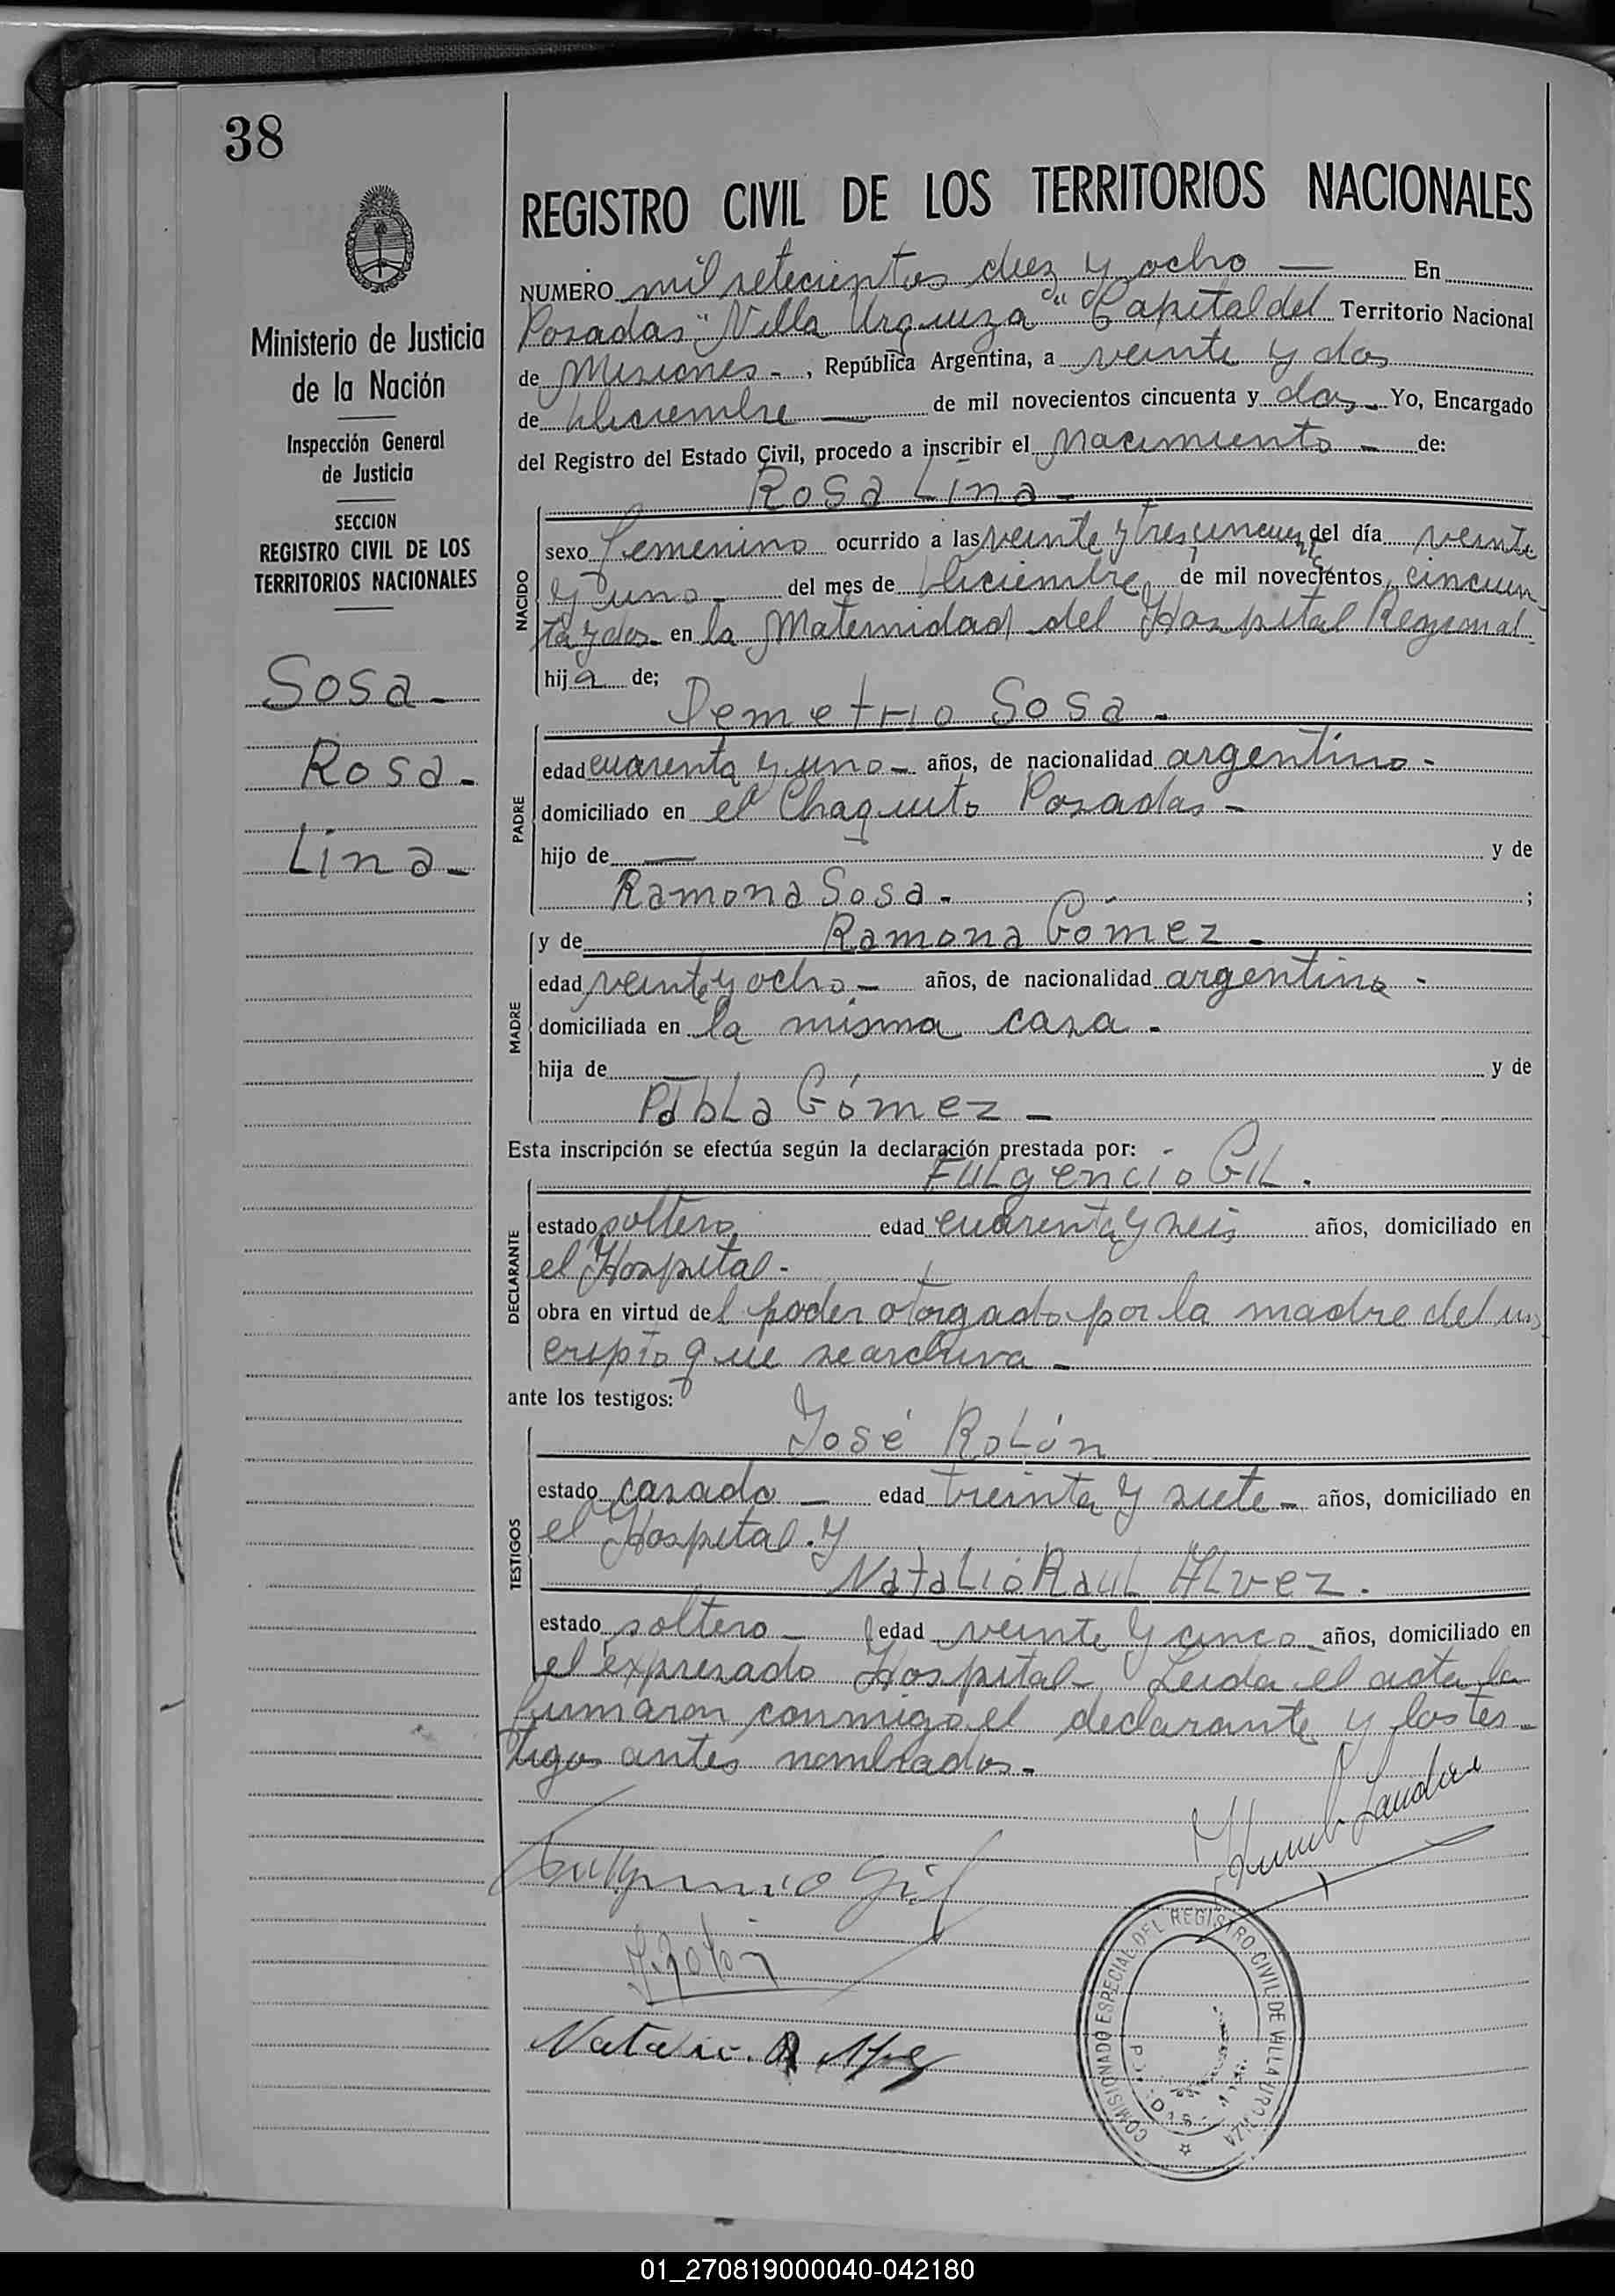 38
Ministerio de Justicia
de la Nación
Inspección General
de Justicia
SECCION
REGISTRO CIVIL DE LOS
TERRITORIOS NACIONALES
Sosa -
Rosa -
Lina -
REGISTRO CIVIL DE LOS TERRITORIOS NACIONALES
NUMERO mil setecientos diez y ocho — En
Posadas "Villa Urquiza" Capital del Territorio Nacional
de Misiones - , República Argentina, a veinte y dos
de Diciembre — de mil novecientos cincuenta y dos - Yo, Encargado
del Registro del Estado Civil, procedo a inscribir el Nacimiento - de:
Rosa Lina -
NACIDO
sexo femenino ocurrido a las veinte y tres, cincuenta del día veinte
y uno - del mes de Diciembre, de mil novecientos, cincuen-
ta y dos - en la Maternidad del Hospital Regional -
hij a de;
Demetrio Sosa -
PADRE
edad cuarenta y uno - años, de nacionalidad argentino -
domiciliado en el Chaquito Posadas -
hijo de — y de
Ramona Sosa - ;
y de Ramona Gómez -
MADRE
edad veinte y ocho - años, de nacionalidad argentina -
domiciliada en la misma casa -
hija de — y de
Pabla Gómez -
Esta inscripción se efectúa según la declaración prestada por:
Fulgencio Gil.
DECLARANTE
estado soltero edad cuarenta y seis años, domiciliado en
el Hospital -
obra en virtud del poder otorgado por la madre del ins
cripto que se archiva -
ante los testigos:
José Rolón
TESTIGOS
estado casado - edad treinta y siete - años, domiciliado en
el Hospital. y
Natalio Raul Alvez.
estado soltero - edad veinte y cinco - años, domiciliado en
el expresado Hospital - Leida el acta la
firmaron conmigo el declarante y los tes-
tigos antes nombrados -
Fulgencio Gil
J. Rolón
Natalio. R Alvez
COMISIONADO ESPECIAL DEL REGISTRO CIVIL DE VILLA URQUIZA
01_270819000040-042180